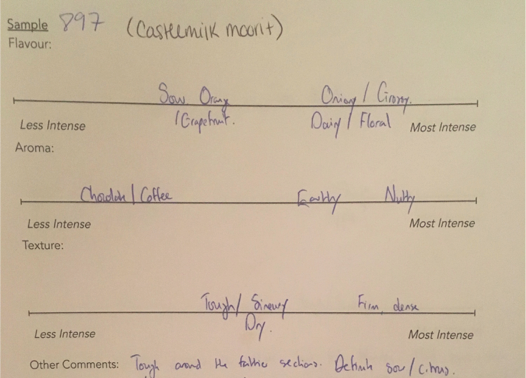 Sample 897 (Castlemilk moorit)
Flavour:
Sour Orange Oniony / Grassy.
/Grapefruit. Dairy / Floral
Less Intense Most Intense
Aroma:
Chocolate | Coffee Earthy Nutty
Less Intense Most Intense
Texture:
Tough / Sinewy Firm, dense
Dry.
Less Intense Most Intense
Other Comments: Tough around the fattier sections. Definite sour / citrus.